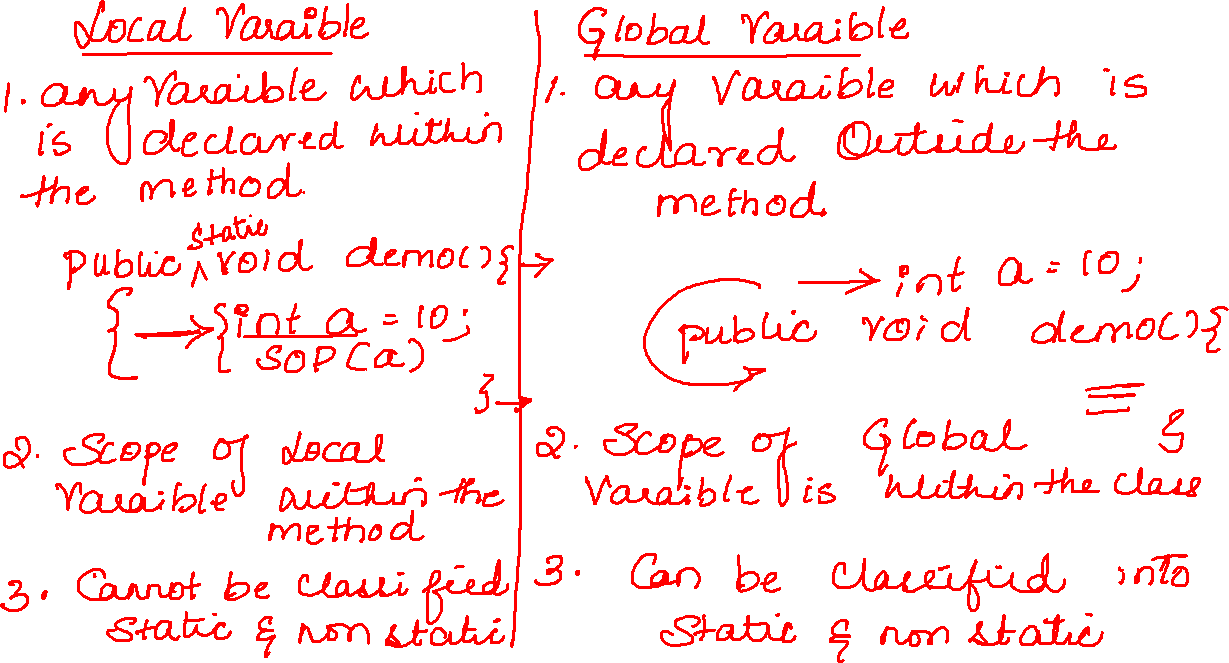 Local Varaible
1. any Varaible which
is declared within
the method.
public static void demo(){
{ → {int a = 10;
SOP(a)
}
2. Scope of Local
Varaible within the
method
3. Cannot be classified
static & non static
Global Varaible
1. any Varaible which is
declared Outside the
method.
int a = 10;
public void demo(){
}
2. Scope of Global
Varaible is within the class
3. Can be classified into
Static & non static